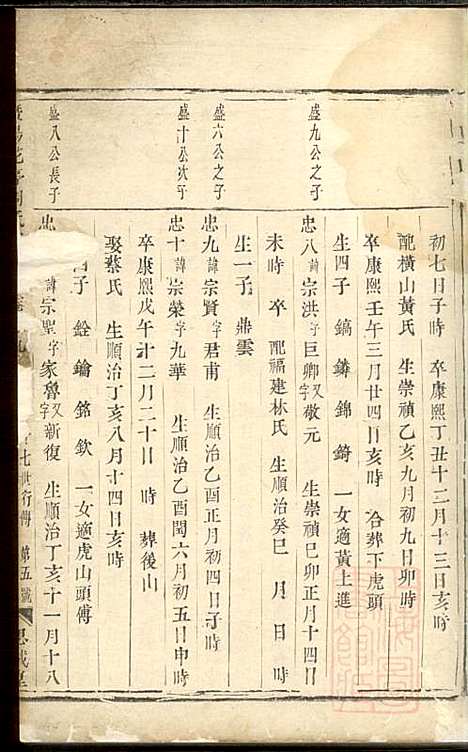 初七日子時 卒康熙丁丑十二月十三日亥時
配橫山黃氏 生崇禎乙亥九月初九日卯時
卒康熙壬午三月廿四日亥時 合葬下虎頭
生四子 鎬 鏻 錦 錡 一女適黃上進
盛九公之子
忠八諱宗洪字巨卿又字敬元 生崇禎己卯正月十四日
未時 卒 配福建林氏 生順治癸巳 月 日 時
生一子 鼎雲
盛六公之子
忠九諱宗賢字君甫 生順治乙酉正月初四日子時
盛十公次子
忠十諱宗榮字九華 生順治乙酉閏六月初五日申時
卒康熙戊午十二月二十日 時 葬後山
娶蔡氏 生順治丁亥八月十四日亥時
子 銓 鑰 銘 欽 一女適虎山頭傅
盛八公長子
忠 諱宗聖字家魯又字新復 生順治丁亥十一月十八
七世行傳 第五號 思成堂